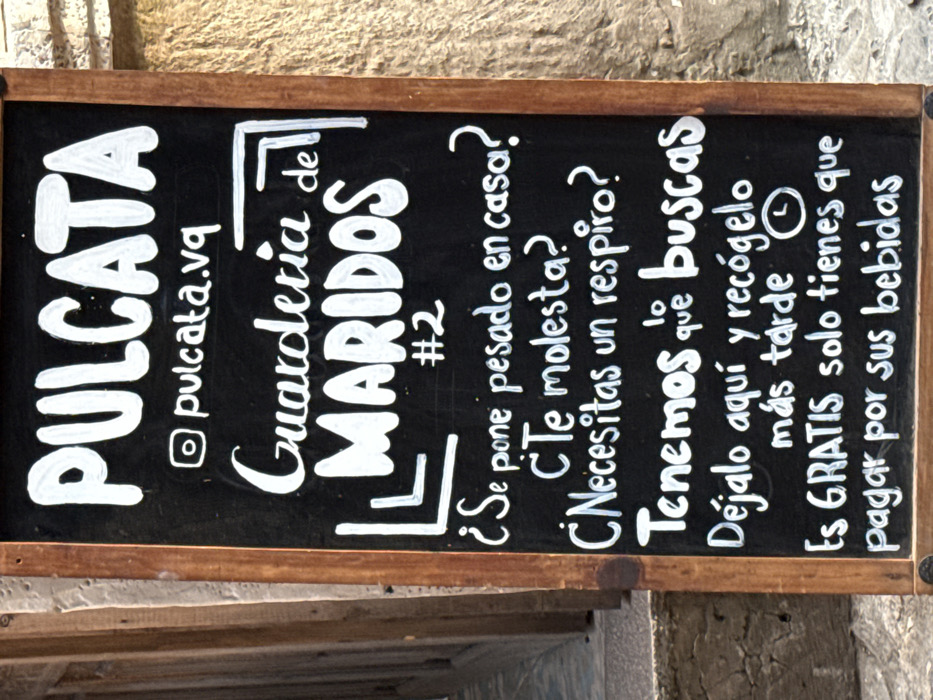 PULCATA
pulcata.vq
Guardería de
MARIDOS
#2
¿Se pone pesado en casa?
¿Te molesta?
¿Necesitas un respiro?
Tenemos lo que buscas
Déjalo aquí y recógelo
más tarde
Es GRATIS solo tienes que
pagar por sus bebidas